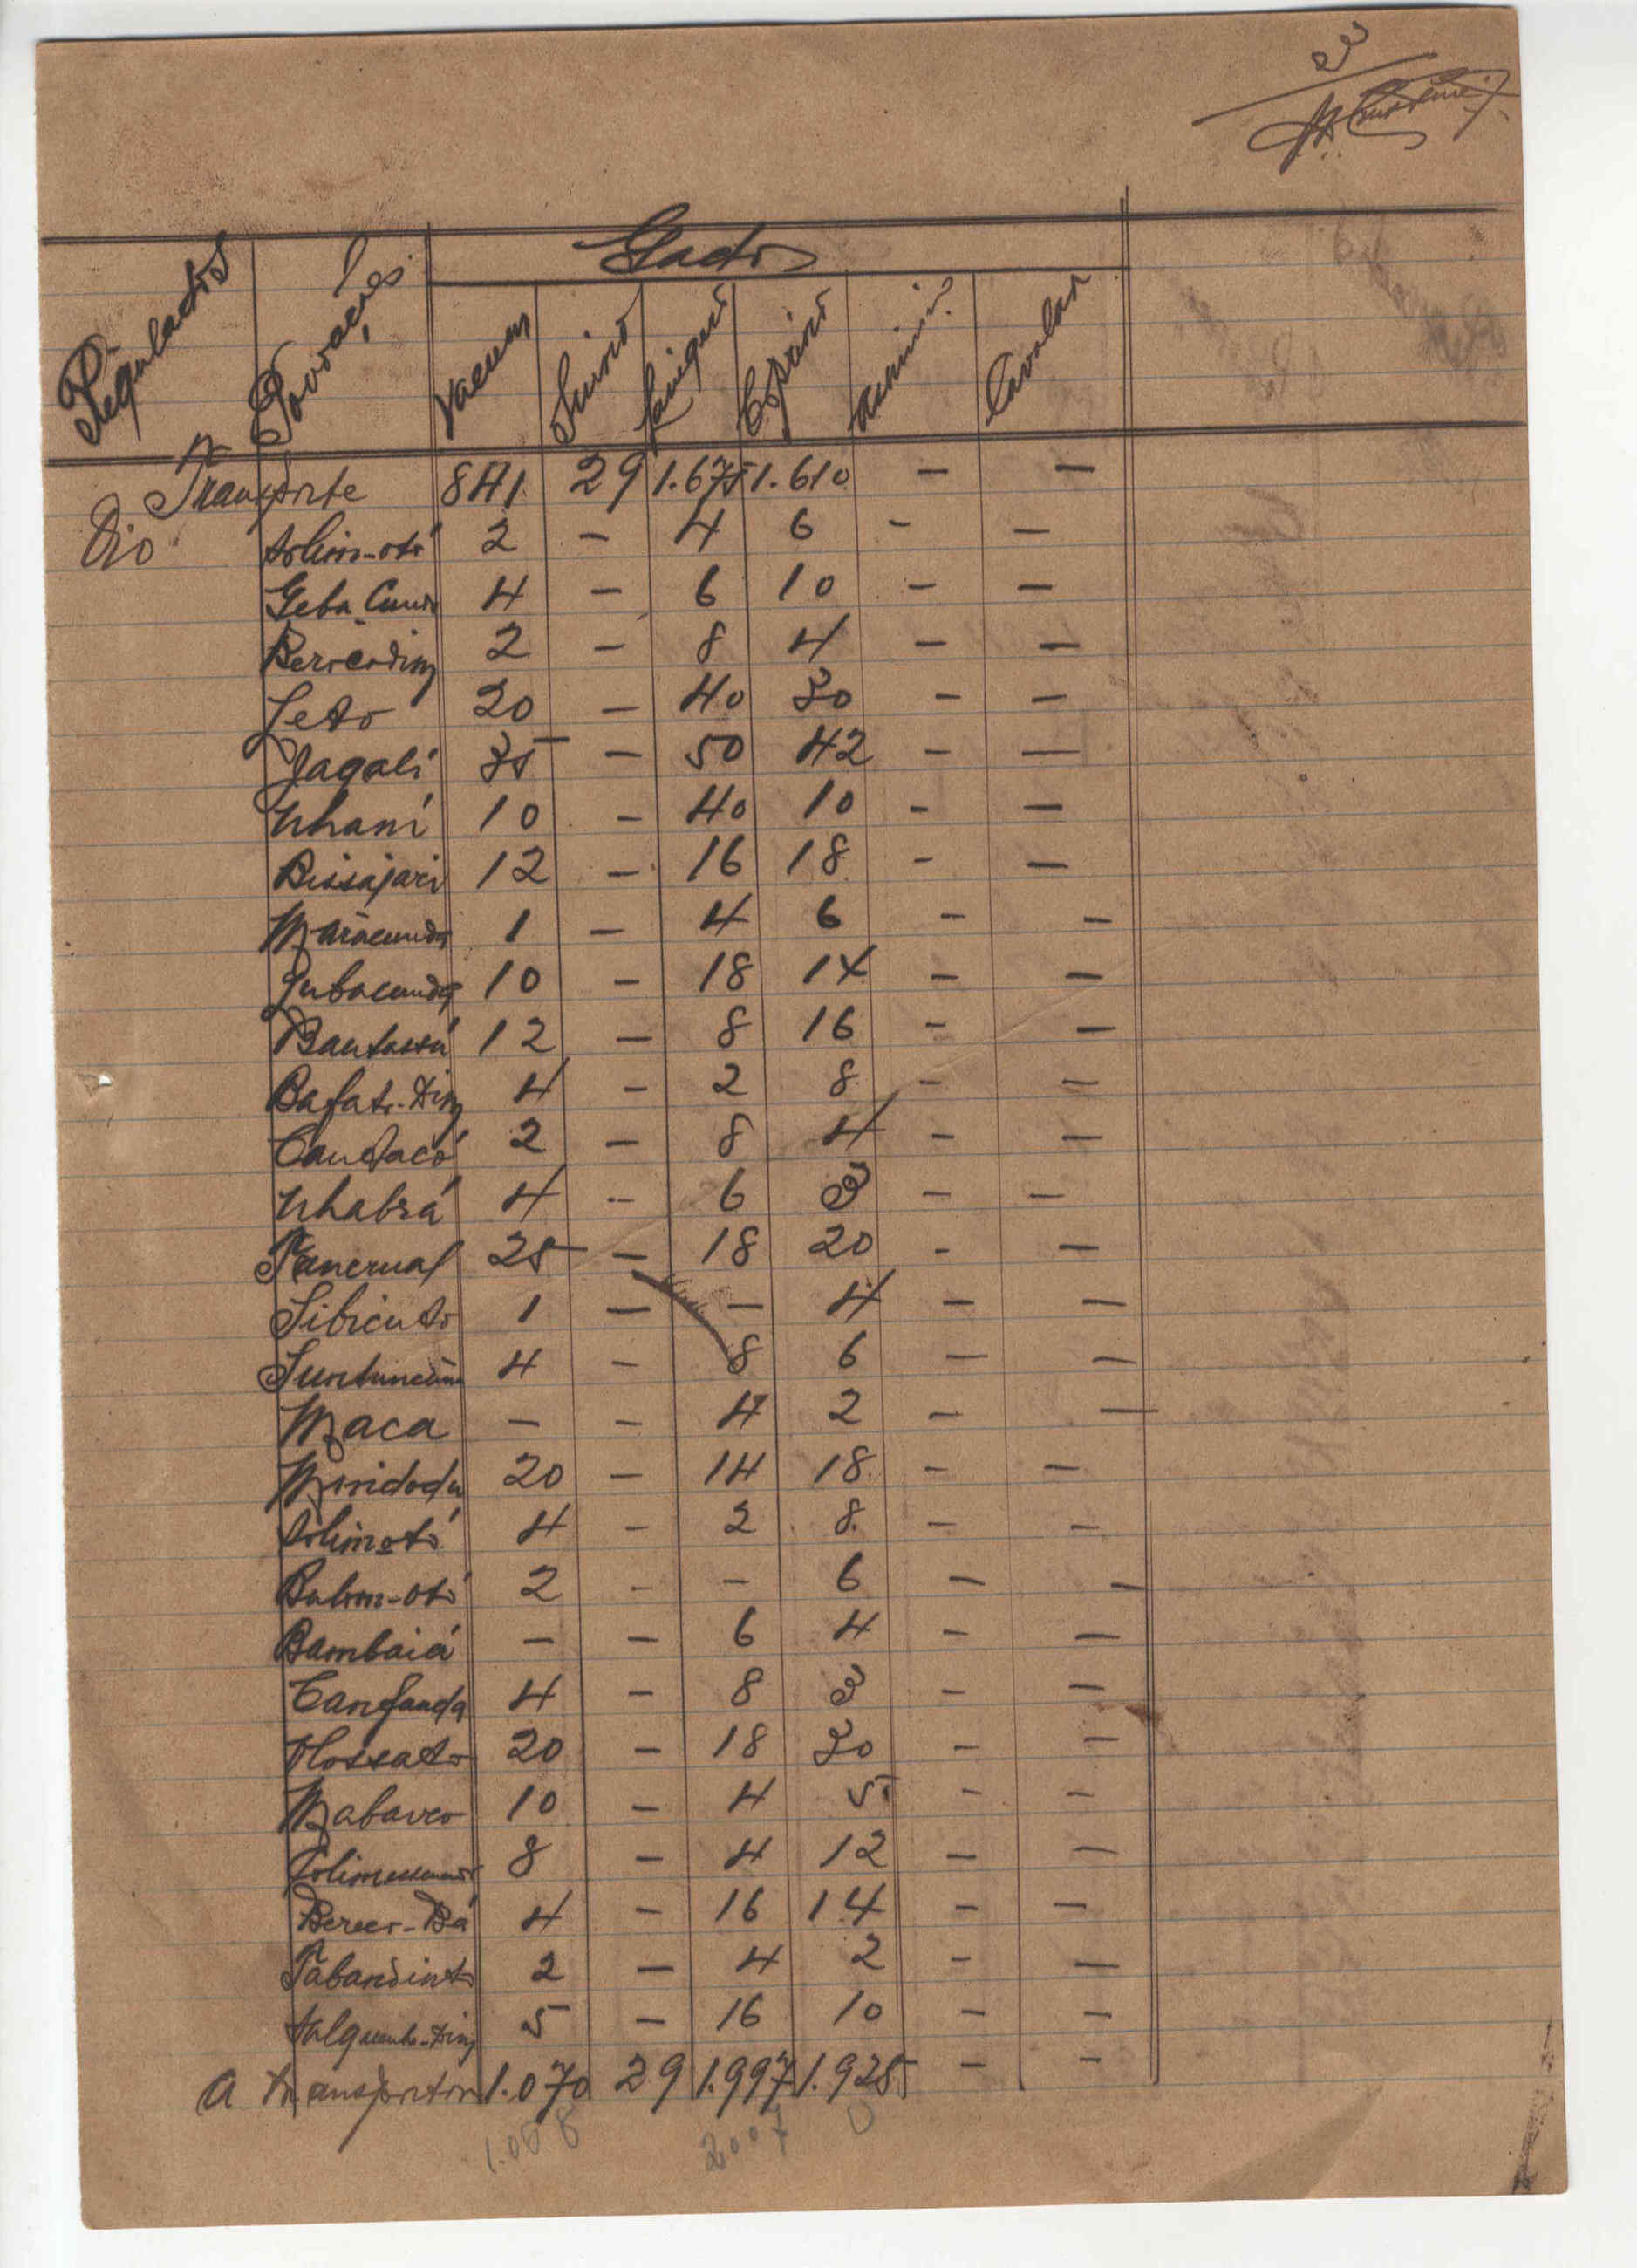 3
Gados
Régulados Povoações Vacum Suino Lanigero Caprino Asinino Cavalar
Transporte 841 29 1.675 1.610 - -
Oio
Solim-otó 2 - 4 6 - -
Geba Cunda 4 - 6 10 - -
2 - 8 4 - -
Jeto 20 - 40 30 - -
Jagali 35 - 50 42 - -
Nhaní 10 - 40 10 - -
Bissajari 12 - 16 18 - -
Maracunda 1 - 4 6 - -
Jubacunda 10 - 18 14 - -
Bantassú 12 - 8 16 - -
4 - 2 8 - -
2 - 8 4 - -
Nhabrá 4 - 6 3 - -
25 - 18 20 - -
Sibicuto 1 - - 4 - -
4 - 8 6 - -
Maca - - 4 2 - -
20 - 14 18 - -
Solimotó 4 - 2 8 - -
2 - - 6 - -
Bambaiá - - 6 4 - -
Canfanda 4 - 8 3 - -
20 - 18 30 - -
10 - 4 5 - -
8 - 4 12 - -
Bereco-Bá 4 - 16 14 - -
Tabandinto 2 - 4 2 - -
5 - 16 10 - -
A transportar 1.070 29 1.997 1.925 - -
1.068 2007